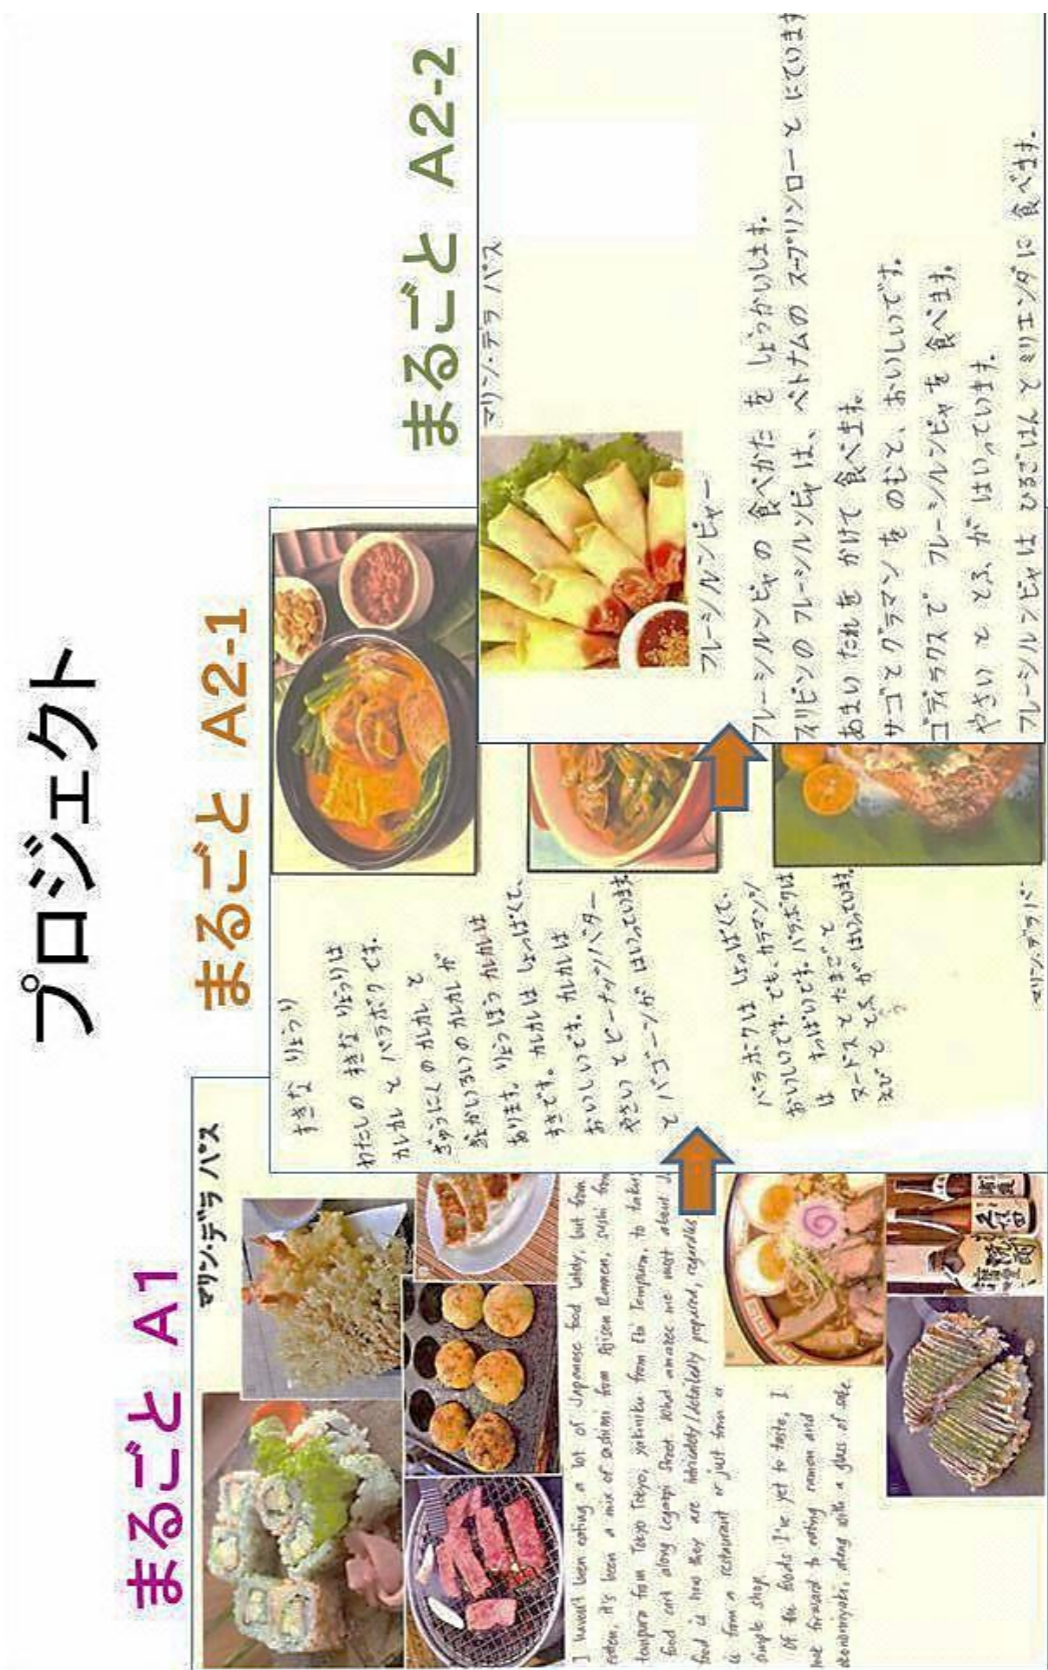 プロジェクト
まるごと A1
マリン・デラ パス
I haven't been eating a lot of Japanese food lately, but from
often, it's been a mix of sashimi from Ajisen Ramen, sushi from
tempura from Tokyo Tokyo, yakiniku from Ebi Tempura, to
food cart along Legazpi Street. What amazes me most about
food is how they are intricately/detailedly prepared, regardless
is from a restaurant or just from a
simple shop.
Of the foods I've yet to taste, I
look forward to eating ramen and
okonomiyaki, along with a glass of sake.
まるごと A2-1
すきな りょうり
わたしの すきな りょうりは
カレカレ と パラボク です。
ぎゅうにくの カレカレ と
かいるいの カレカレ が
あります。りょうほう カレカレは
すきです。カレカレは しょっぱくて、
おいしいです。カレカレは
やさい と ピーナッツバター
と バゴーンが はいっています
パラボクは しょっぱくて、
おいしいです。でも、カラマンシ
は すっぱいです。パラボクは
ヌードス と たまご と
えび と とふ が はいっています。
マリン・デラパ
まるごと A2-2
マリン・デラ パス
フレーシルンピャー
フレーシルンピャの 食べかた を しょうかいします。
フィリピンの フレーシルンピャは、ベトナムの スープリンロー と にています
あまい たれを かけて 食べます。
サゴ と グラマン を のむと、おいしいです。
ゴディラクス で フレーシルンピャを 食べます。
やさい と とふ が はいっています。
フレーシルンピャは ひるごはん と ミリエンダ に 食べます。